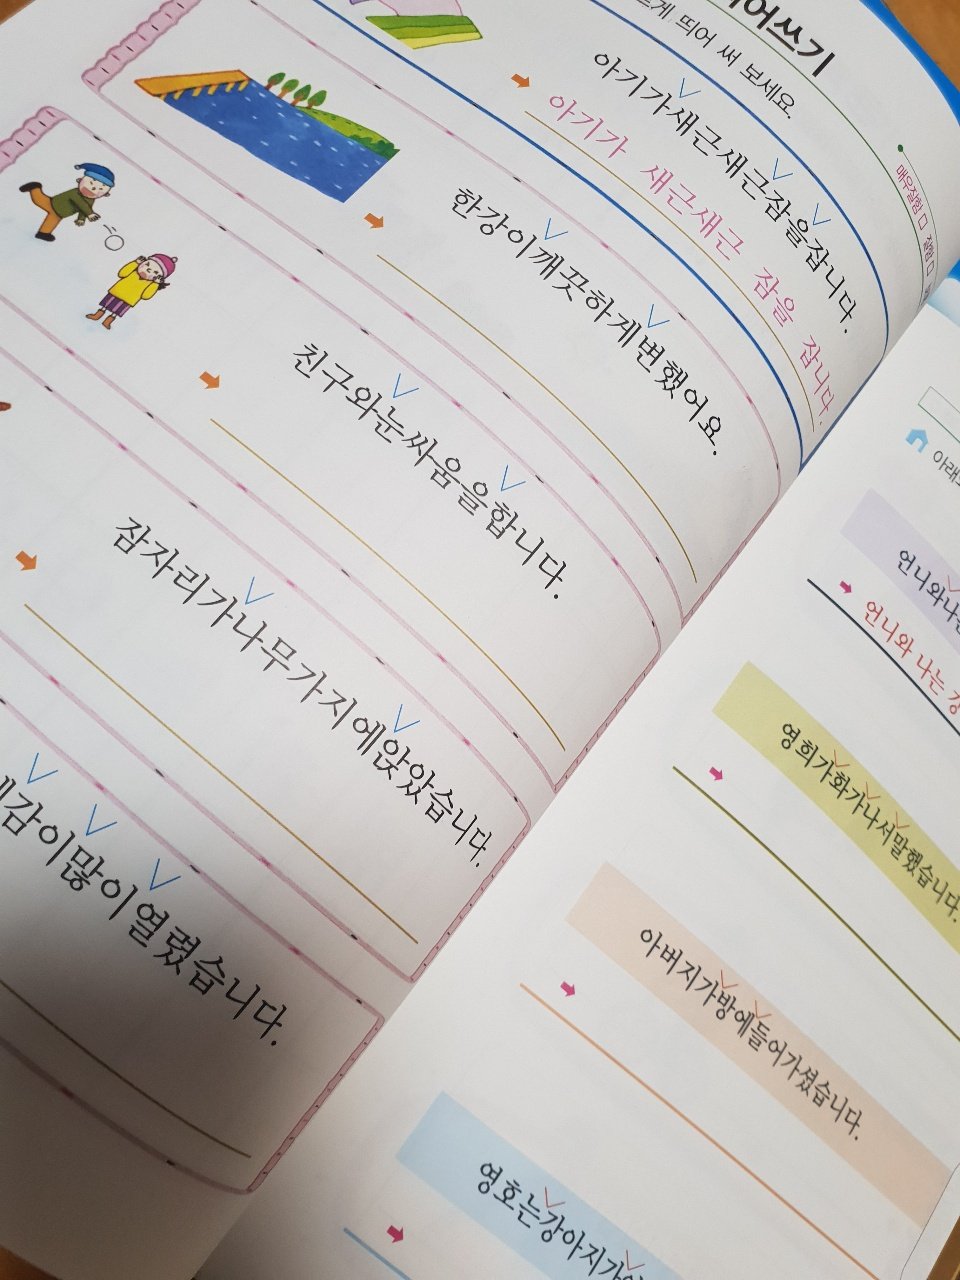 띄어 써 보세요.
매우잘함 잘함
아기가새근새근잠을잡니다.
아기가 새근새근 잠을 잡니다.
한강이깨끗하게변했어요.
친구와눈싸움을합니다.
잠자리가나무가지에앉았습니다.
감이많이열렸습니다.
언니와
언니와 나는
영희가화가나서말했습니다.
아버지가방에들어가셨습니다.
영호는강아지가